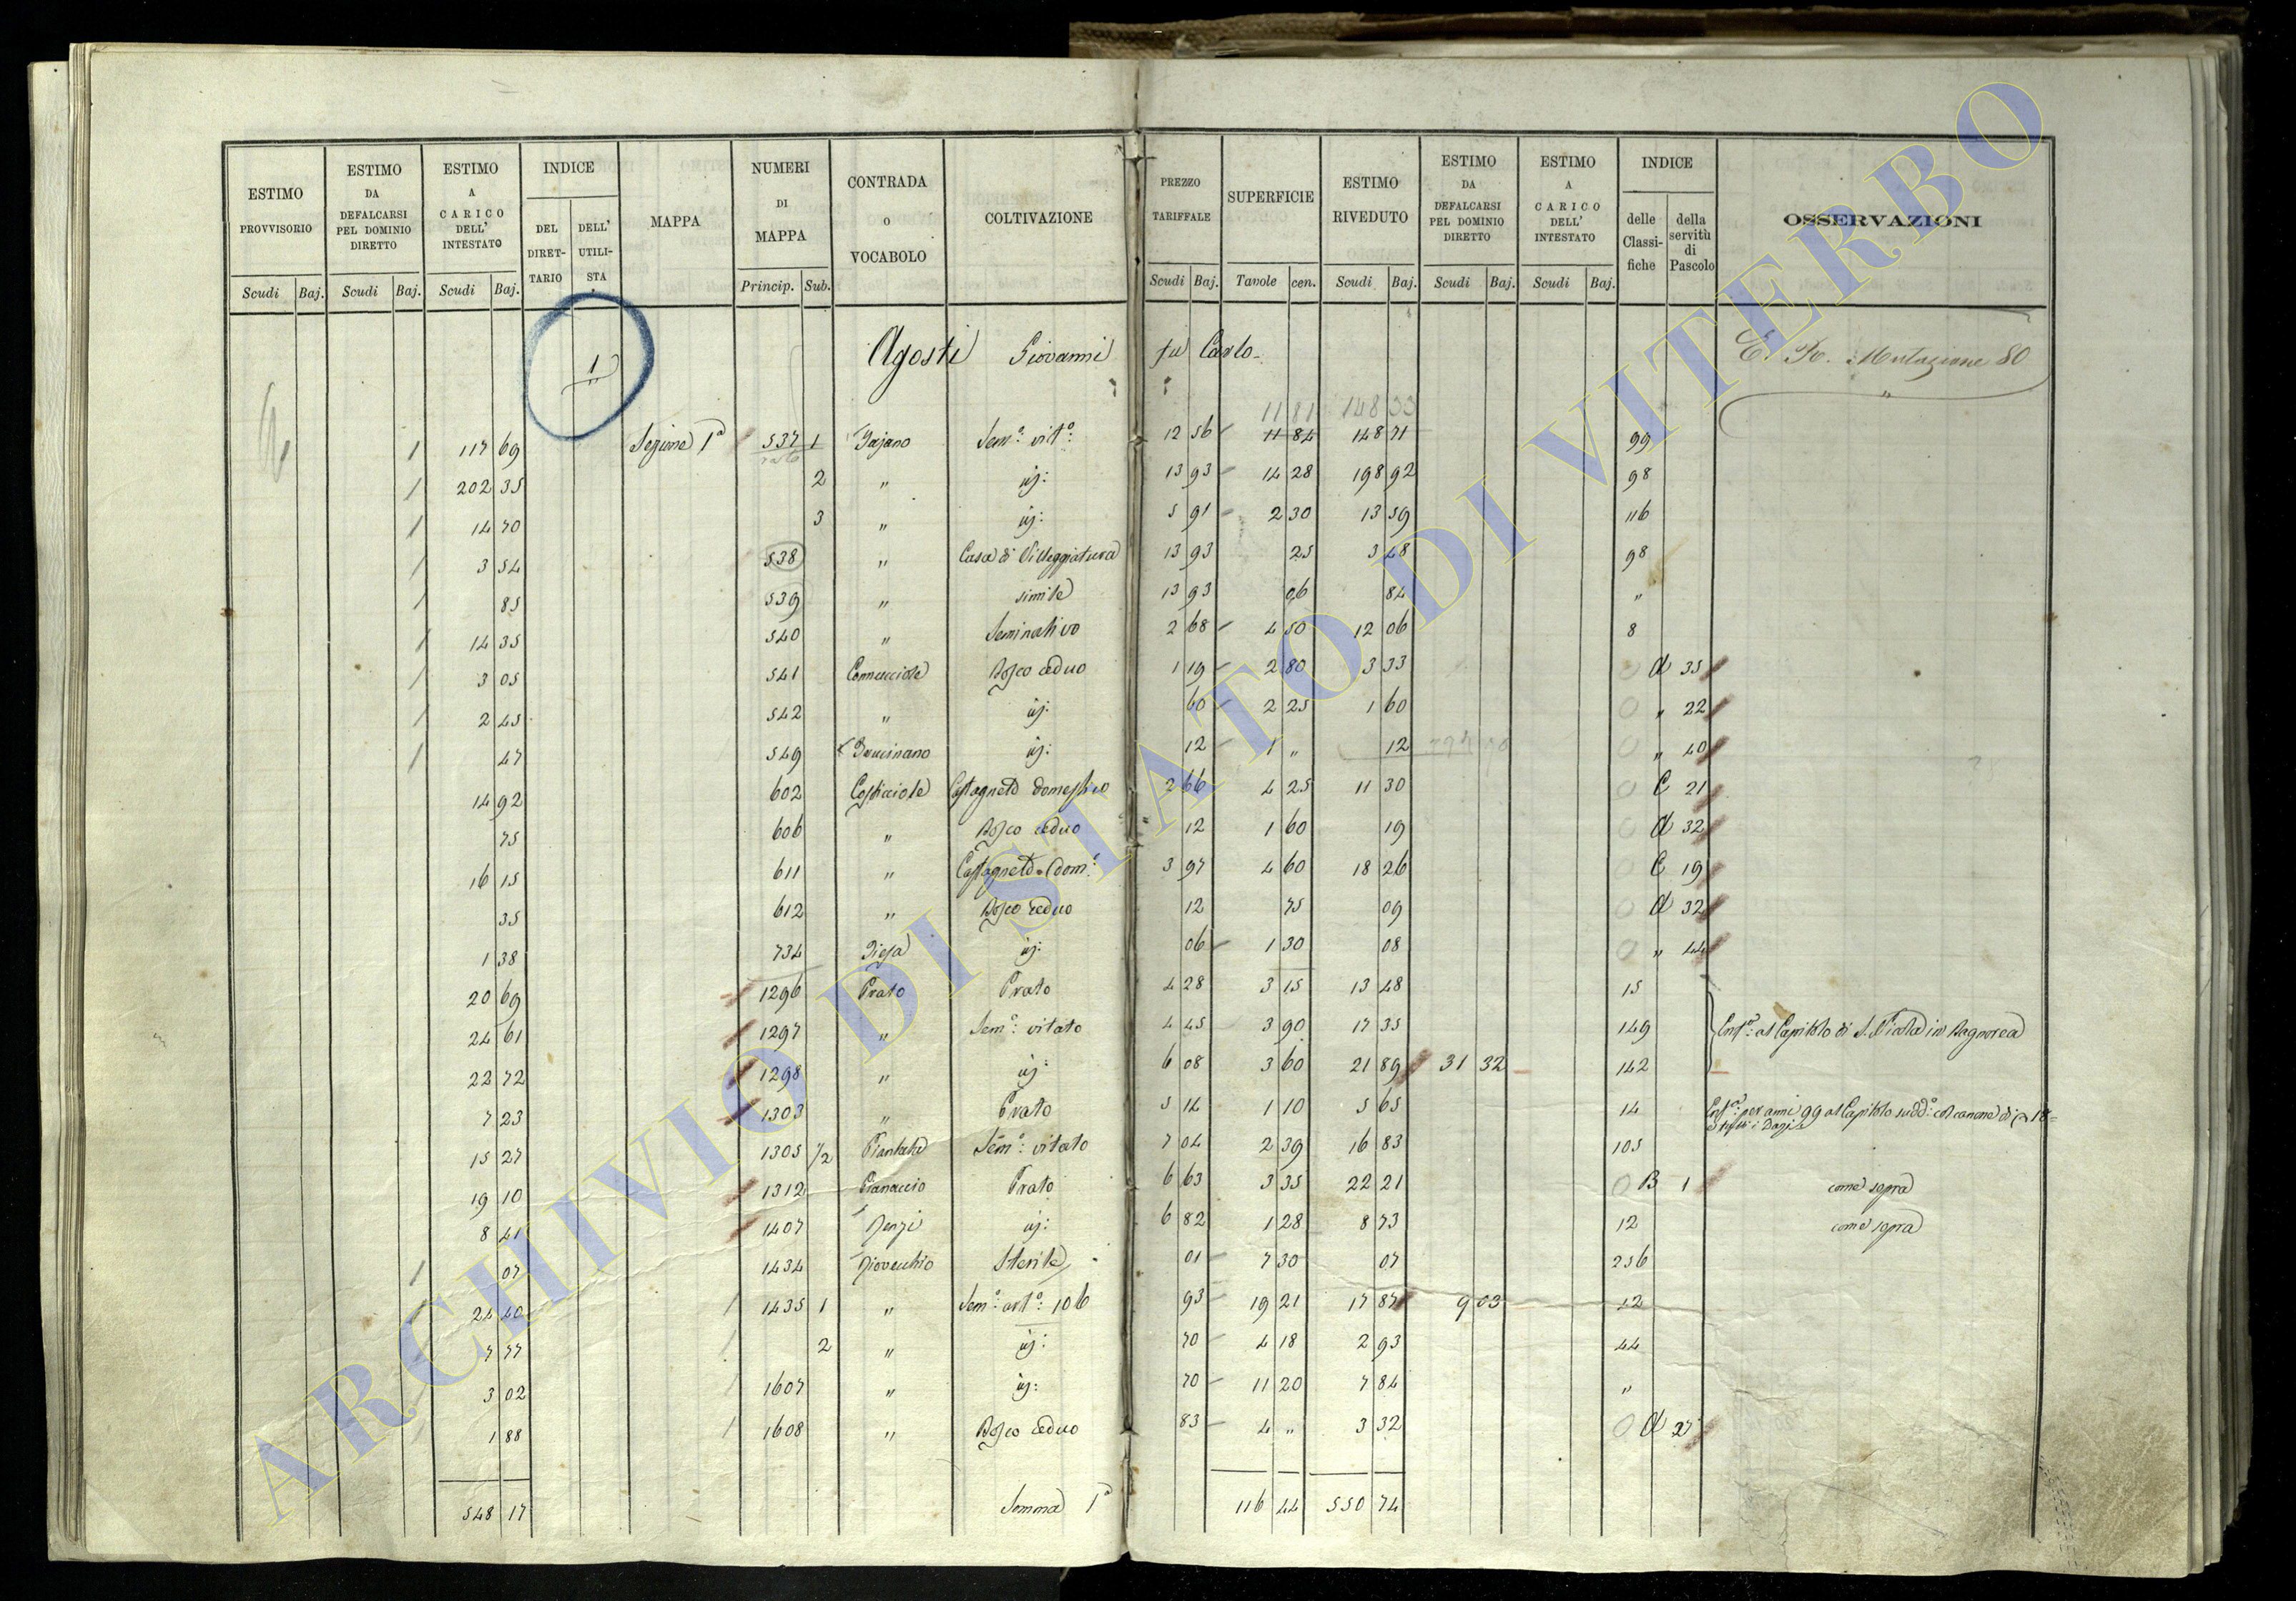 ESTIMO PROVVISORIO Scudi Baj.
ESTIMO DA DEFALCARSI PEL DOMINIO DIRETTO Scudi Baj.
ESTIMO A CARICO DELL' INTESTATO Scudi Baj.
INDICE DEL DIRET-TARIO DELL' UTILI-STA
MAPPA
NUMERI DI MAPPA Princip. Sub.
CONTRADA o VOCABOLO
COLTIVAZIONE
PREZZO TARIFFALE Scudi Baj.
SUPERFICIE Tavole cen.
ESTIMO RIVEDUTO Scudi Baj.
ESTIMO DA DEFALCARSI PEL DOMINIO DIRETTO Scudi Baj.
ESTIMO A CARICO DELL' INTESTATO Scudi Baj.
INDICE delle Classi-fiche della servitù di Pascolo
OSSERVAZIONI
1 Agosti Giovanni fu Carlo Mutazione 80
11 81 148 33
1 117 69 Sezione 1ª 537 1 Sem.º vit.º 12 56 11 84 148 71 99
1 202 35 2 " id: 13 93 14 28 198 92 98
1 14 70 3 " id: 5 91 2 30 13 59 116
1 3 54 538 " Casa di Villeggiatura 13 93 25 3 48 98
1 85 539 " simile 13 93 06 84 "
1 14 35 540 " Seminativo 2 68 4 50 12 06 8
1 3 05 541 Bosco ceduo 1 19 2 80 3 33 A 35
1 2 45 542 " id: 60 2 25 1 60 " 22
1 47 549 id: 12 1 " 12 " 40
14 92 602 Costicciole Castagneto domestico 2 66 4 25 11 30 C 21
75 606 " Bosco ceduo 12 1 60 19 A 32
16 15 611 " Castagneto dom.º 3 97 4 60 18 26 C 19
35 612 " Bosco ceduo 12 75 09 A 32
1 38 734 id: 06 1 30 08 " 44
20 69 1296 Prato Prato 4 28 3 15 13 48 15
24 61 1297 " Sem.º vitato 4 45 3 90 17 35 149 al Capitolo di S. in Bagnorea
22 72 1298 " id: 6 08 3 60 21 89 31 32 142
7 23 1303 " Prato 5 14 1 10 5 65 14 per anni 99 al Capitolo sudd.º col canone di 18
15 27 1305 1/2 Sem.º vitato 7 04 2 39 16 83 105
19 10 1312 Pianaccio Prato 6 63 3 35 22 21 B 1 come sopra
8 41 1407 Renzi id: 6 82 1 28 8 73 12 come sopra
1 07 1434 Sterile 01 7 30 07 256
1 24 40 1435 1 " Sem.º art.º 106 93 19 21 17 87 9 03 42
1 7 77 2 " id: 70 4 18 2 93 44
1 3 02 1607 " id: 70 11 20 7 84 "
1 1 88 1608 " Bosco ceduo 83 4 " 3 32 A 27
548 17 Somma 1ª 116 44 550 74
ARCHIVIO DI STATO DI VITERBO